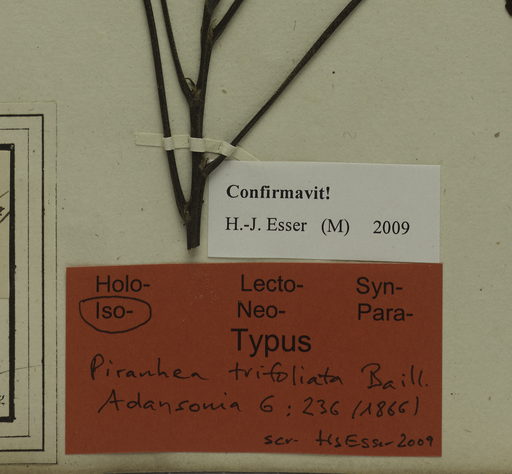 Confirmavit!
H.-J. Esser (M) 2009
Holo- Lecto- Syn-
Iso- Neo- Para-
Typus
Piranhea trifoliata Baill.
Adansonia 6 : 236 (1866)
scr. HjEsser 2009